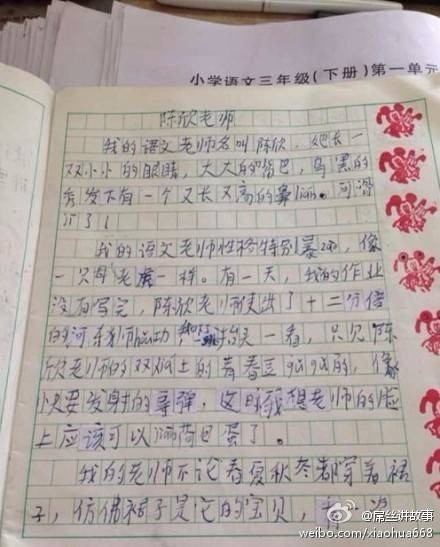 小学语文三年级(下册)第一单元
陈欣老师
我的语文老师名叫陈欣,她长一
双小小的眼睛,大大的嘴巴,乌黑的
秀发下有一个又长又高的鼻涵。可滑
了!
我的语文老师性格特别暴,像
一只母老虎一样。有一天,我的作业
没有写完,陈欣老师使出了十二分倍
的河东狮,我抬头一看,只见陈
欣老师的双上的青春豆的,像
要发射的导弹,这时我想老师的脸
上应该可以荷包蛋了。
我的老师不论春夏秋冬都穿着裙
子,仿佛裙子是它的宝贝,
@屌丝讲故事
weibo.com/xiaohua668